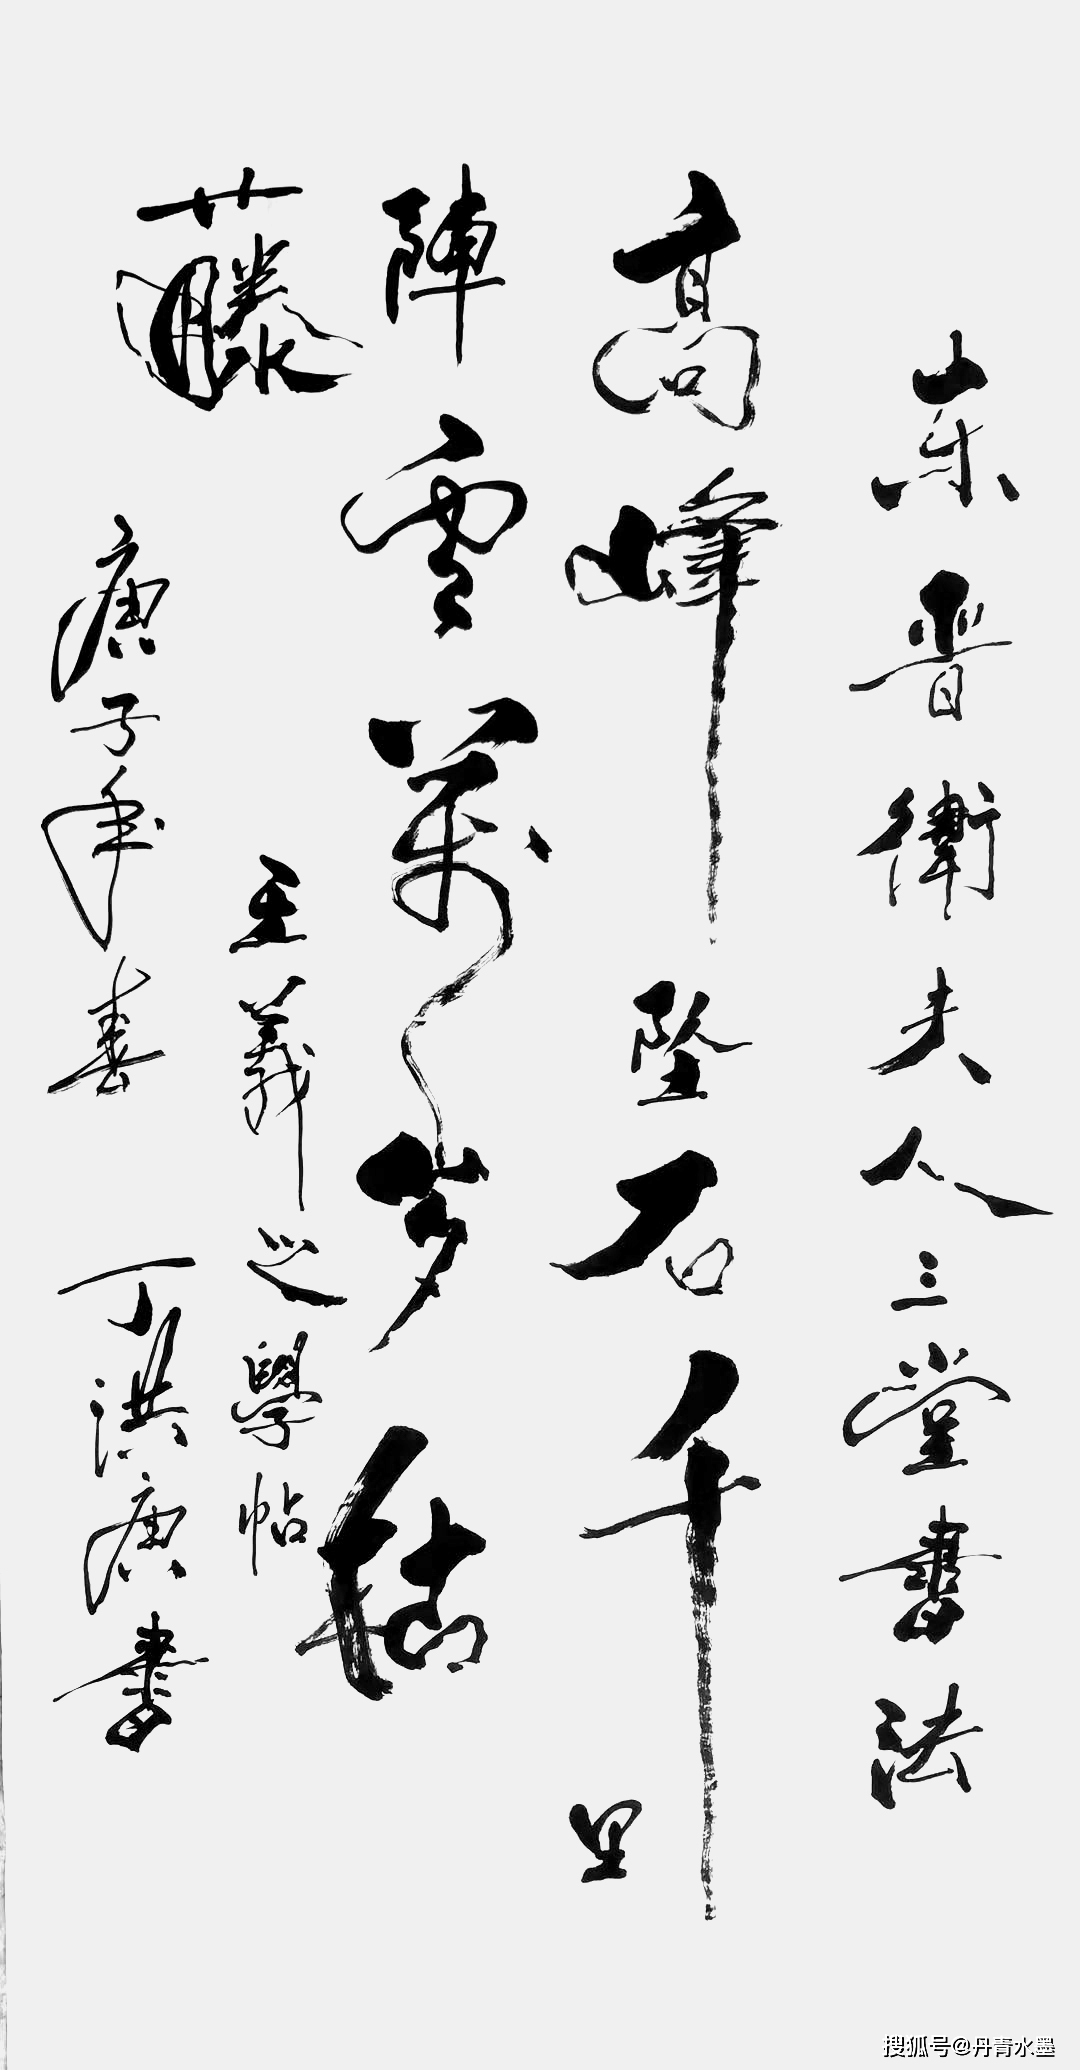 东晋衛夫人三堂書法
高峰坠石千里
陣雲萬岁枯
藤 王羲之學帖
庚子年春 丁洪庚書
搜狐号@丹青水墨